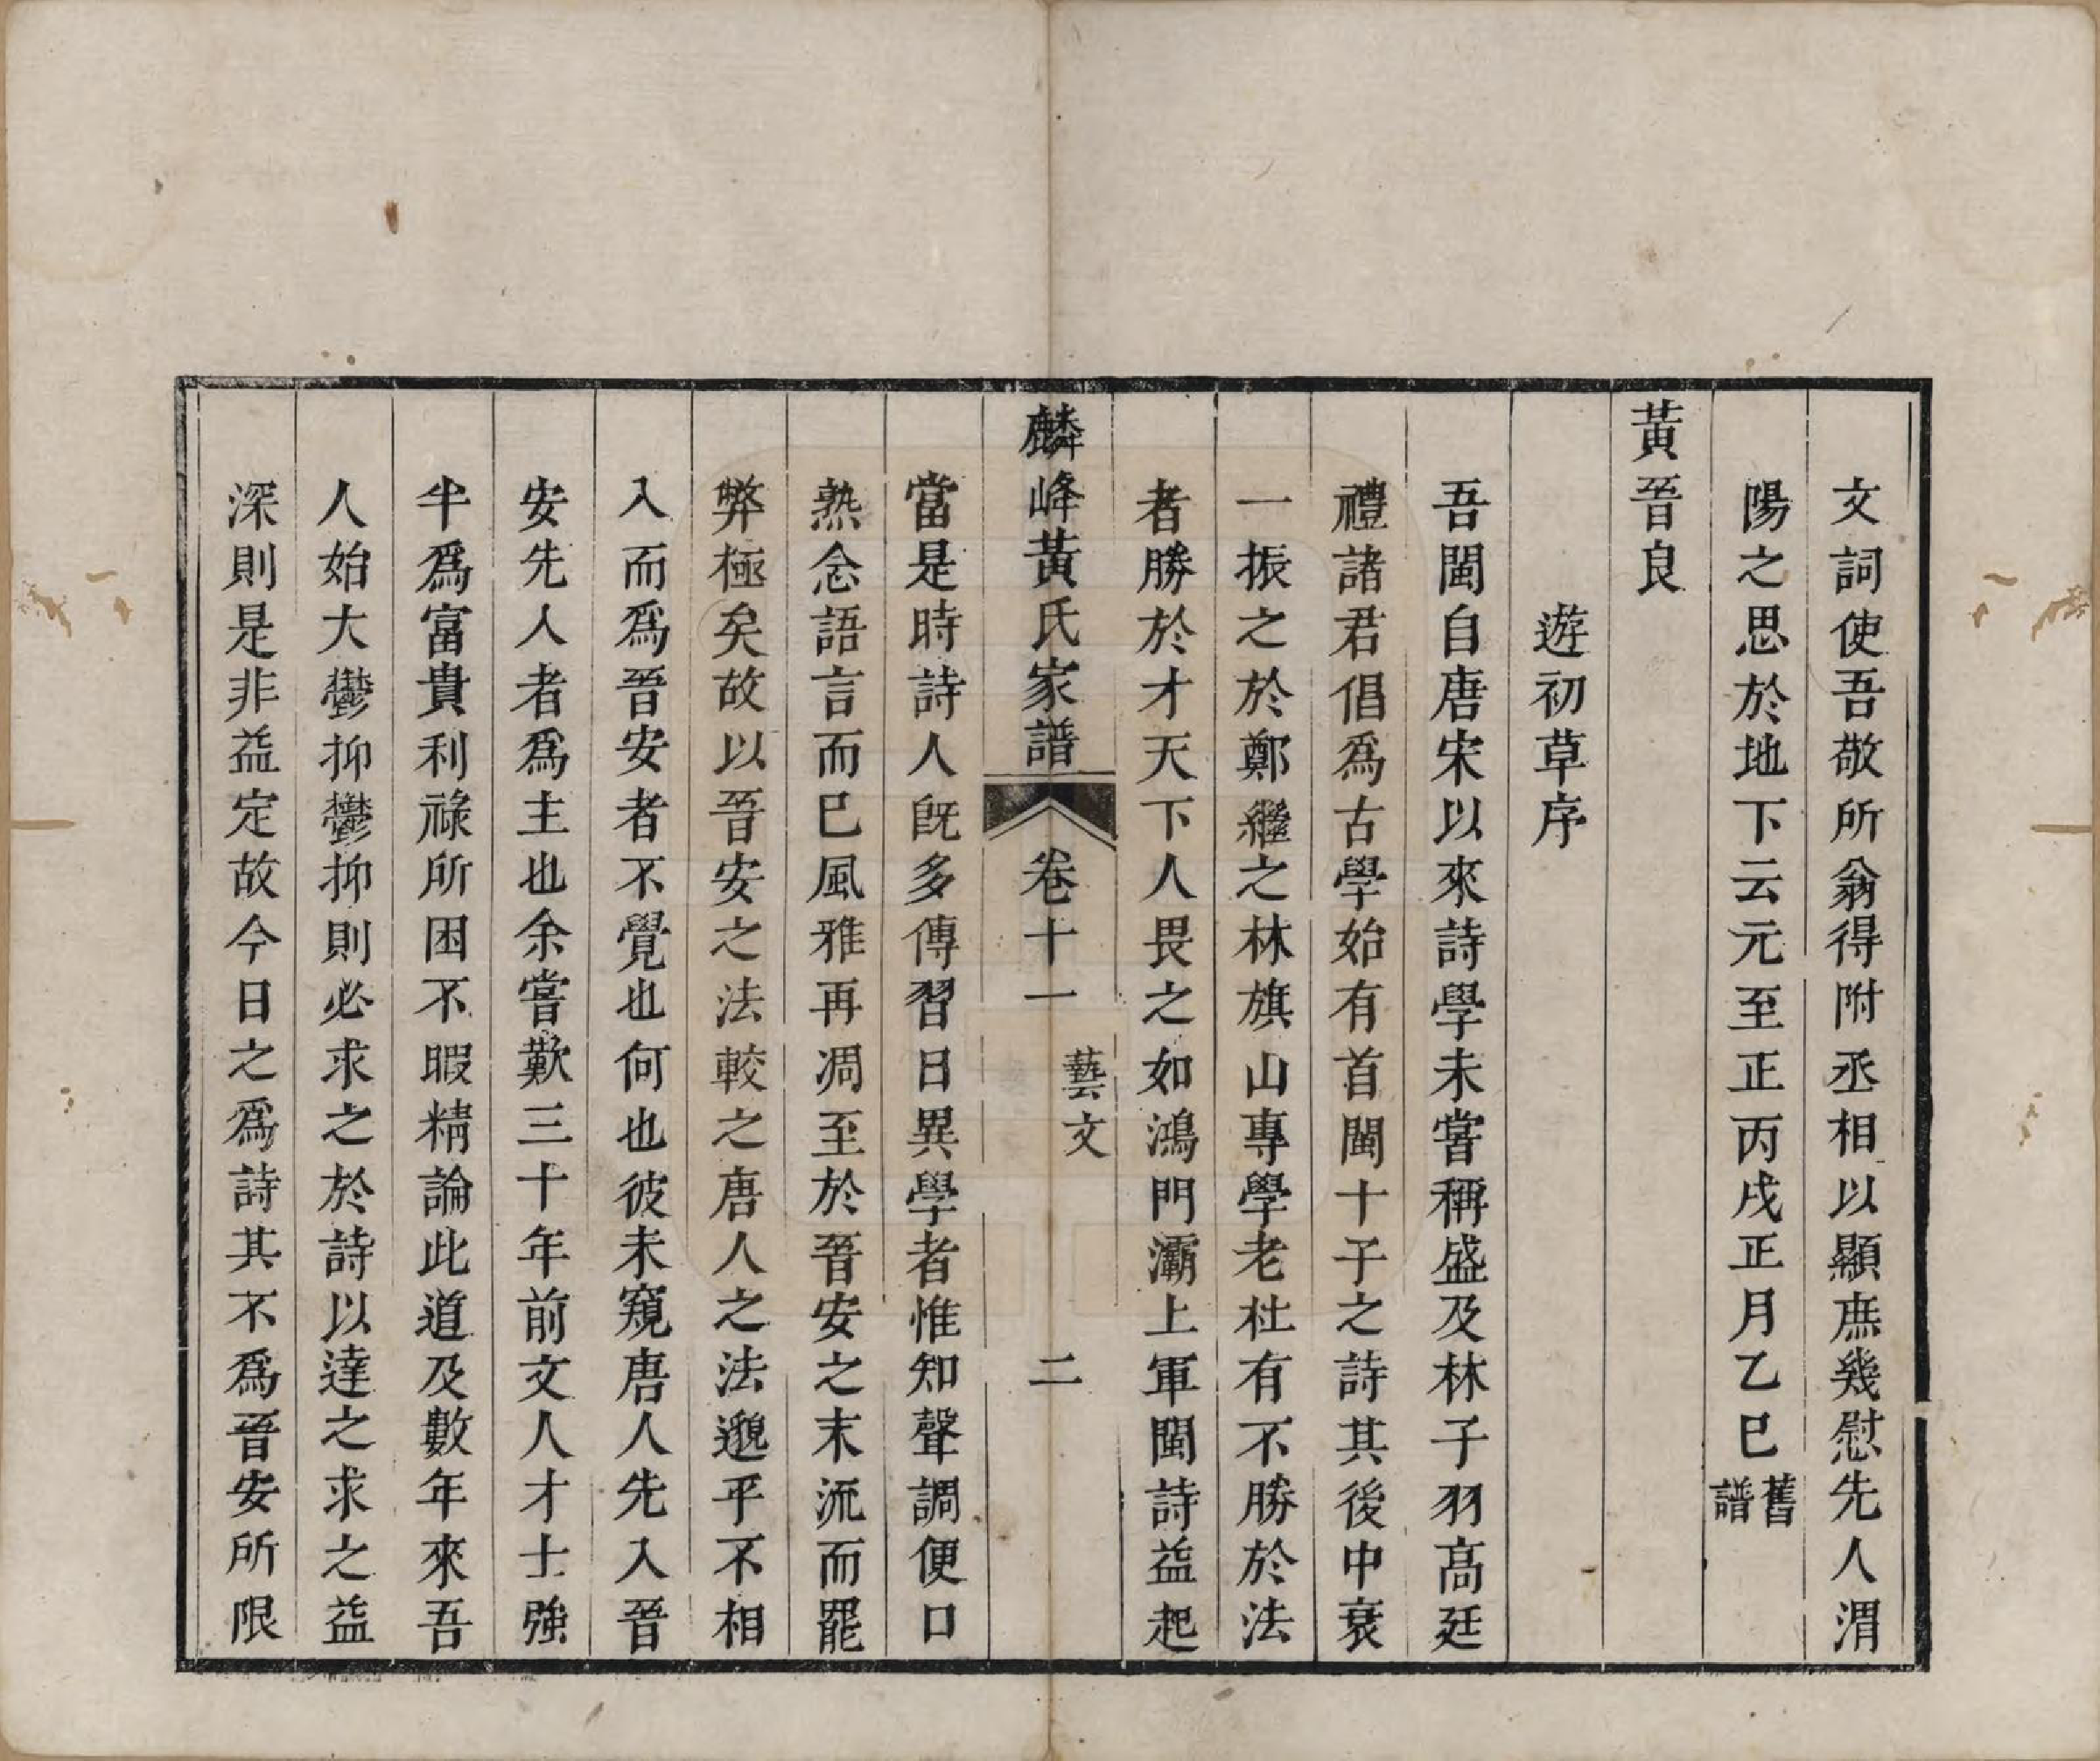 文詞使吾敬所翁得附丞相以顯庶幾慰先人渭
陽之思於地下云元至正丙戌正月乙巳舊譜
黃晉良
遊初草序
吾閩自唐宋以來詩學未嘗稱盛及林子羽高廷
禮諸君倡爲古學始有首閩十子之詩其後中衰
一振之於鄭繼之林旗山專學老杜有不勝於法
者勝於才天下人畏之如鴻門灞上軍閩詩益起
麟峰黃氏家譜
卷十一
藝文
二
當是時詩人旣多傳習日異學者惟知聲調便口
熟念語言而已風雅再凋至於晉安之末流而罷
弊極矣故以晉安之法較之唐人之法邈乎不相
入而爲晉安者不覺也何也彼未窺唐人先入晉
安先人者爲主也余嘗歎三十年前文人才士強
半爲富貴利祿所困不暇精論此道及數年來吾
人始大鬱抑鬱抑則必求之於詩以達之求之益
深則是非益定故今日之爲詩其不爲晉安所限